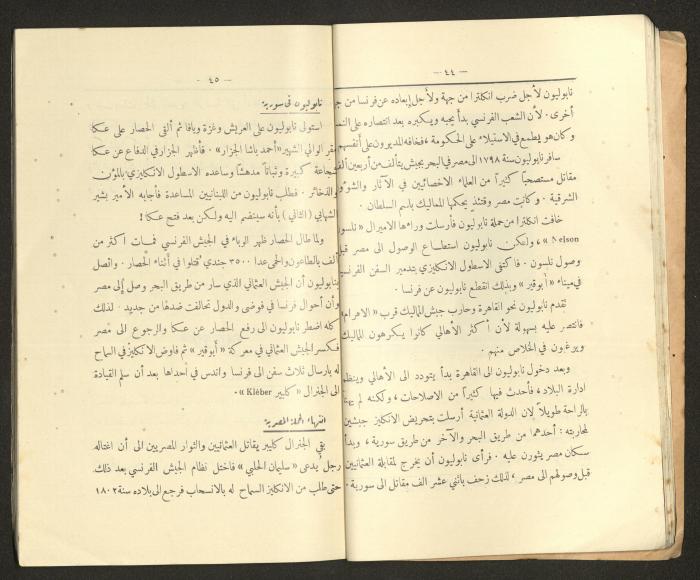 — ٤٤ —
نابوليون لأجل ضرب انكلترا من جهة ولأجل إبعاده عن فرنسا من
أخرى . لأن الشعب الفرنسي بدأ يحبه ويكبره بعد انتصاره على النمسا
وكان هو يطمع في الاستيلاء على الحكومة ، فخافه المديرون على أنفسهم
سافر نابوليون سنة ١٧٩٨ الى مصر في البحر بجيش يتألف من أربعين ألف
مقاتل مستصحباً كثيراً من العلماء الاخصائيين في الآثار والشؤون
الشرقية . وكانت مصر وقتئذٍ يحكمها المماليك باسم السلطان .
خافت انكلترا من حملة نابوليون فأرسلت وراءها الاميرال « نلسون
Nelson » ، ولكن نابوليون استطاع الوصول الى مصر قبل
وصول نلسون . فاكتفى الاسطول الانكليزي بتدمير السفن الفرنسية
في ميناء « أبوقير » وبذلك انقطع نابوليون عن فرنسا .
تقدم نابوليون نحو القاهرة وحارب جيش المماليك قرب « الاهرام »
فانتصر عليه بسهولة لأن أكثر الأهالي كانوا يكرهون المماليك
ويرغبون في الخلاص منهم .
وبعد دخول نابوليون الى القاهرة بدأ يتودد الى الأهالي وينظم
ادارة البلاد ، فأحدث فيها كثيراً من الاصلاحات ، ولكنه لم يهنأ
بالراحة طويلاً لأن الدولة العثمانية أرسلت بتحريض الانكليز جيشين
لمحاربته : أحدهما من طريق البحر والآخر من طريق سورية ، وبدأ
سكان مصر يثورون عليه . فرأى نابوليون أن يخرج لمقابلة العثمانيين
قبل وصولهم الى مصر ، لذلك زحف باثني عشر الف مقاتل الى سورية .
— ٤٥ —
نابوليون في سورية
استولى نابوليون على العريش وغزة ويافا ثم ألقى الحصار على عكا
مقر الوالي الشهير « أحمد باشا الجزار » . فأظهر الجزار في الدفاع عن عكا
شجاعة كبيرة وثباتاً مدهشاً وساعده الاسطول الانكليزي بالمؤن
والذخائر . فطلب نابوليون من اللبنانيين المساعدة فأجابه الأمير بشير
الشهابي ( الثاني ) بأنه سينضم اليه ولكن بعد فتح عكا !
ولما طال الحصار ظهر الوباء في الجيش الفرنسي فمات أكثر من
ألف بالطاعون والحمى عدا ٣٥٠٠ جندي قتلوا في أثناء الحصار . واتصل
بنابوليون أن الجيش العثماني الذي سار من طريق البحر وصل إلى مصر
وأن أحوال فرنسا في فوضى والدول تحالفت ضدها من جديد . لذلك
كله اضطر نابوليون الى رفع الحصار عن عكا والرجوع الى مصر
فكسر الجيش العثماني في معركة « أبوقير » ثم فاوض الانكليز في السماح
له بارسال ثلاث سفن الى فرنسا واندس في احداها بعد أن سلم القيادة
الى الجنرال « كليبر Kléber » .
انتهاء الحملة المصرية
بقي الجنرال كليبر يقاتل العثمانيين والثوار المصريين الى أن اغتاله
رجل يدعى « سليمان الحلبي » فاختل نظام الجيش الفرنسي بعد ذلك
حتى طلب من الانكليز السماح له بالانسحاب فرجع الى بلاده سنة ١٨٠٢